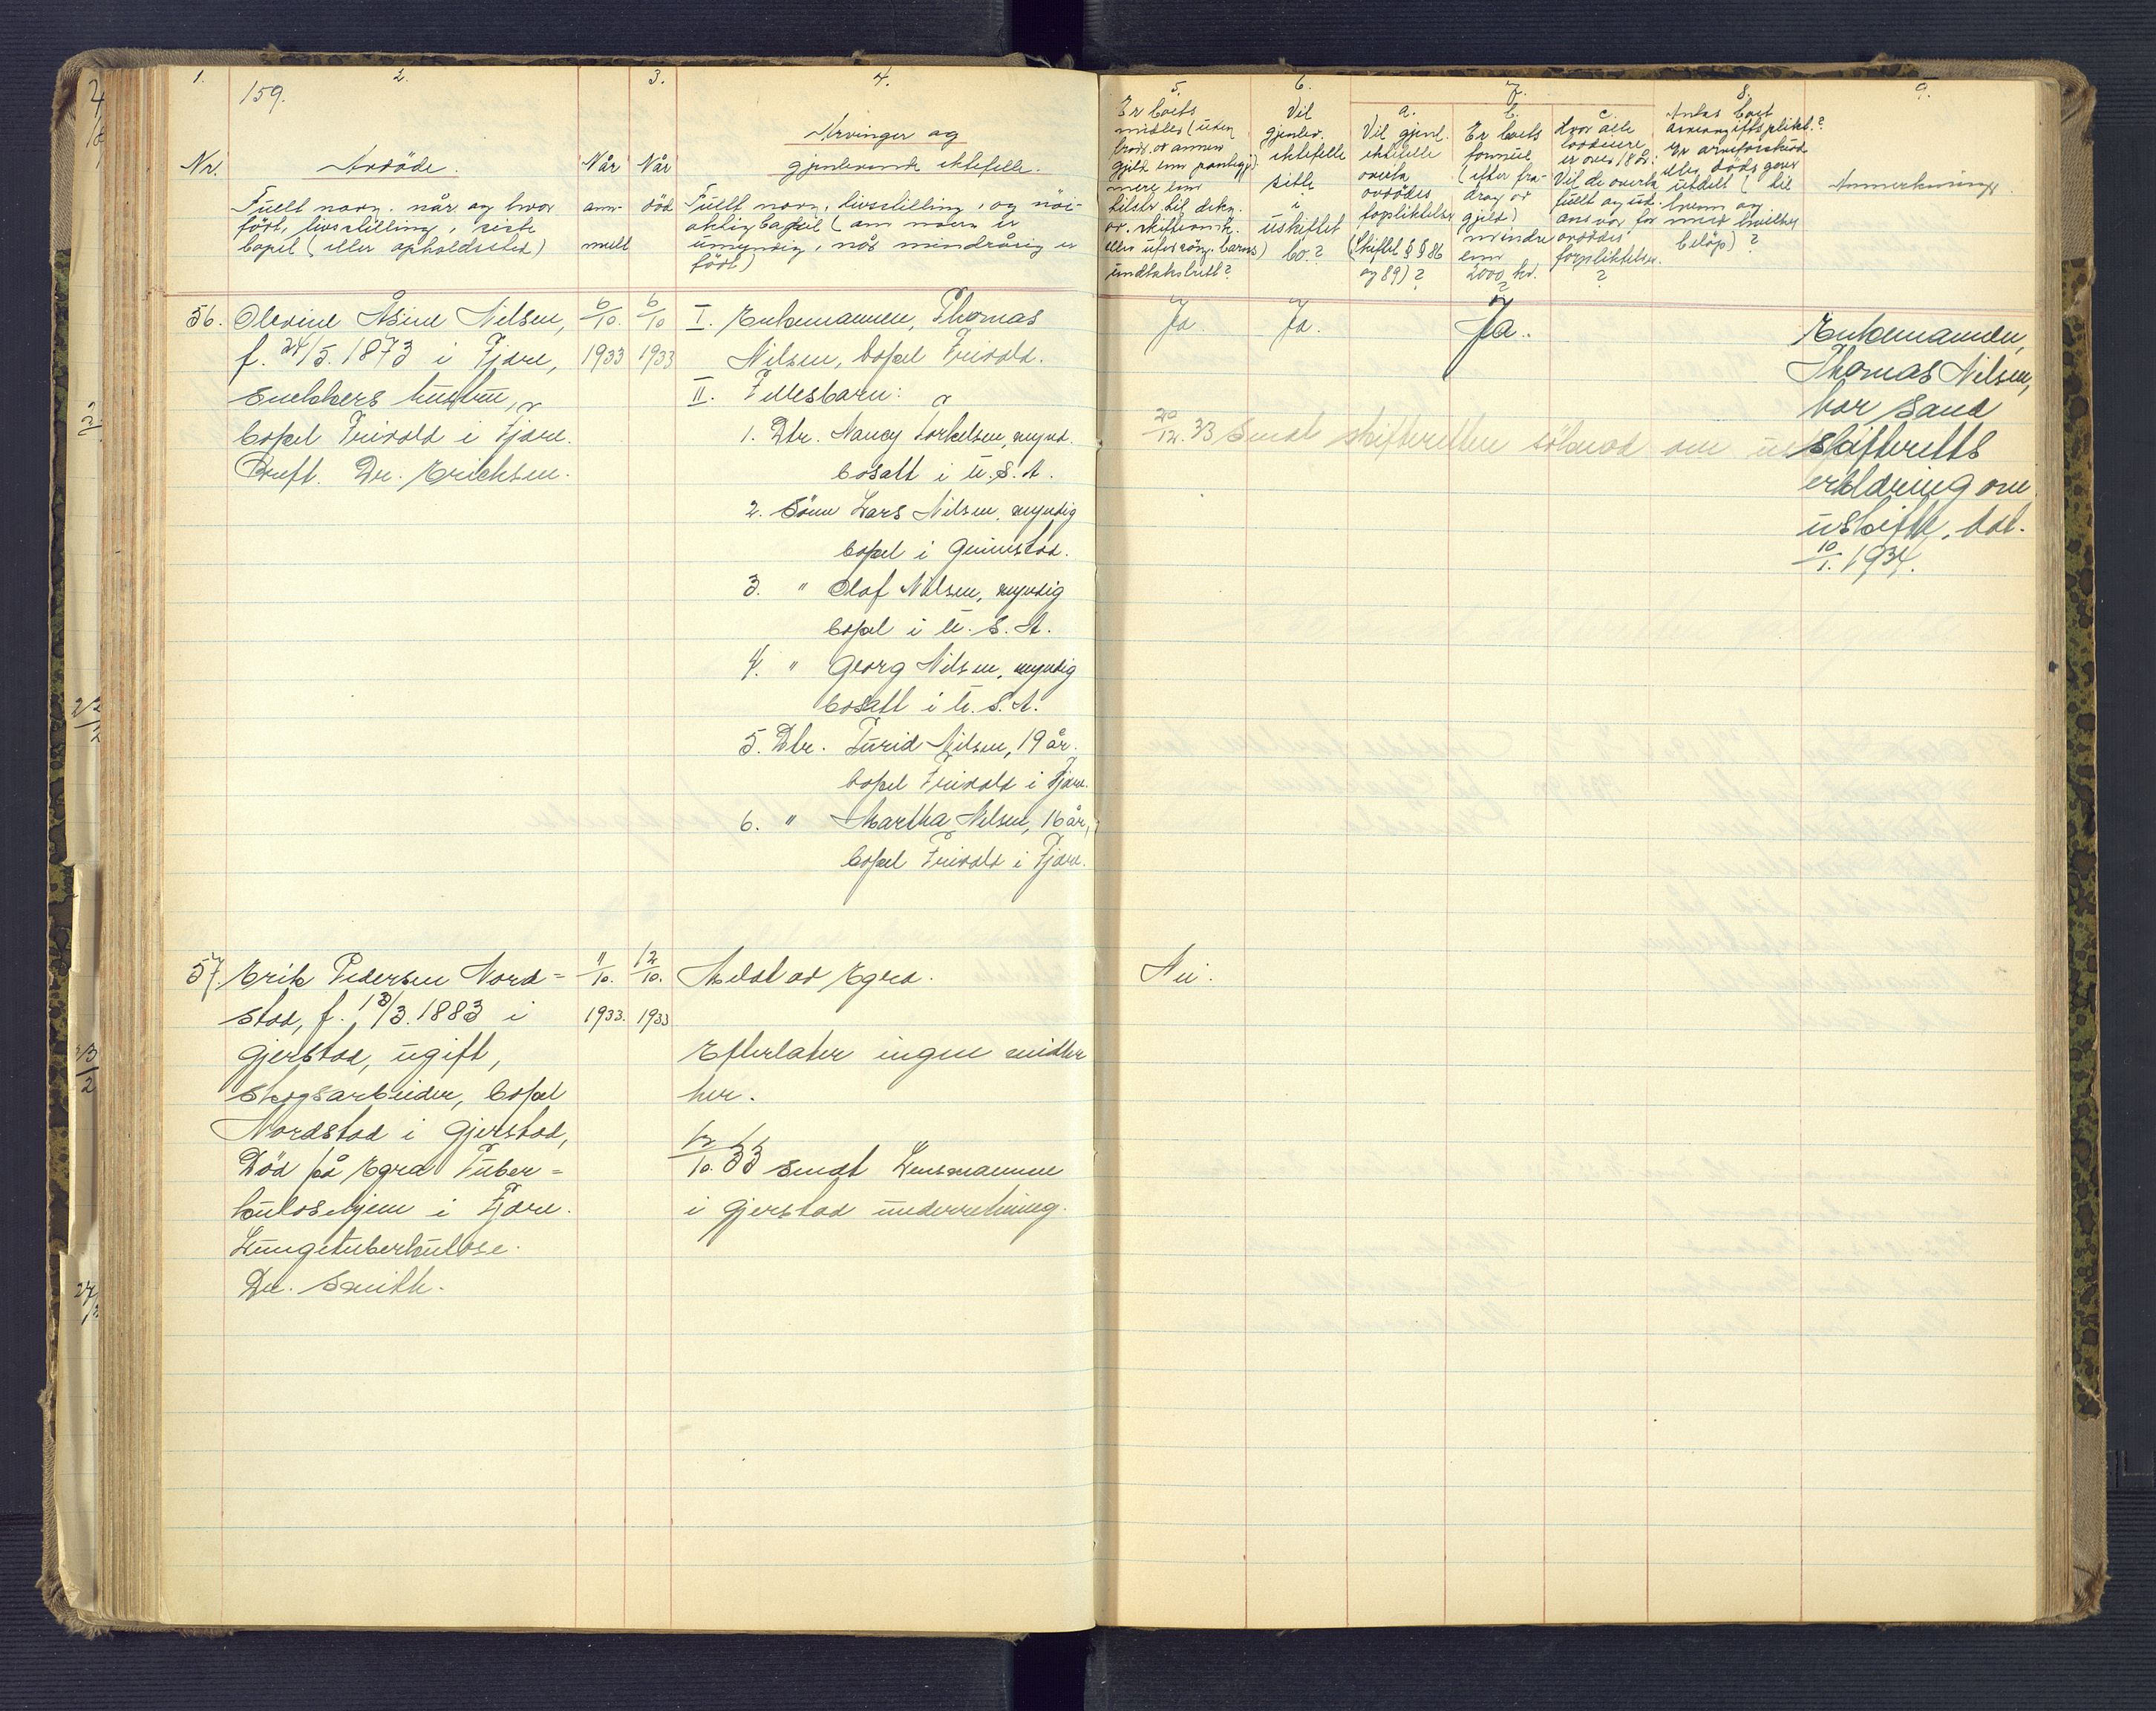 1.
159.
2.
3.
4.
Nr.
Avdöde.
Når
Når
Arvinger og
gjenlevende ektefelle.
Fullt navn, når og hvor
født, livsstilling, siste
bopel (eller opholdssted)
anm-
meldt
död
Fullt navn, livsstilling, og nöi-
aktig bopel (om noen er
umyndig, når mindreårig er
født)
5.
Er boets
midler (uten
gjeld enn pantegj.)
mere enn
tilstr. til dekn.
undtaksrett?
6.
Vil
gjenlev.
ektefelle
sitte
i
uskiftet
bo?
7.
a.
Vil gjenl.
ektefelle
overta
avdödes
forpliktelser
(Skiftel. §§ 86
og 89)?
b.
Er boets
formue
(efter fra-
drag av
gjeld)
mindre
enn
2000 kr.
?
c.
Hvor alle
loddeiere
er over 18 år:
Vil de overta
fullt og ud.
ansvar for
avdödes
forpliktelser.
?
8.
Antas boet
arveavgiftsplikt.?
Er arveforskudd
eller dödsgaver
utdelt (til
hvem og
med hvilket
belöp)?
9.
Anmerkninger.
56.
Olevine Åsine Nilsen,
f. 24/5. 1873 i Fjære,
snekkers hustru,
bopel Frivold i Fjære.
Kreft. Dr. Erichsen.
6/10.
1933
6/10
1933
I. Enkemannen, Thomas
Nilsen, bopel Frivold.
II. Fellesbarn:
1. Dtr. Nancy Torkelsen, mynd.
bosatt i U.S.A.
2. Sönn Lars Nilsen, myndig
bopel i Grimstad.
3. " Olaf Nilsen, myndig
bopel i U.S.A.
4. " Georg Nilsen, myndig
bosatt i U.S.A.
5. Dtr. Turid Nilsen, 19 år.
bopel Frivold i Fjære.
6. " Martha Nilsen, 16 år,
bopel Frivold i Fjære.
Ja
Ja.
Ja.
20/12.33 Sendt skifteretten söknad om
Enkemannen,
Thomas Nilsen,
har Sand
skifteretts
erklæring om
uskifte, dat.
10/1. 1934.
57.
Erik Pedersen Nord=
stad, f. 13/3. 1883 i
Gjerstad, ugift,
skogsarbeider, bopel
Nordstad i Gjerstad,
Död på Egra Tuber=
kulosehjem i Fjære.
Lungetuberkulose.
Dr. Smith.
11/10.
1933.
12/10.
1933
Meldt av Egra.
Efterlater ingen midler
her.
12/10.33 sendt Lensmannen
i Gjerstad underretning.
Nei.